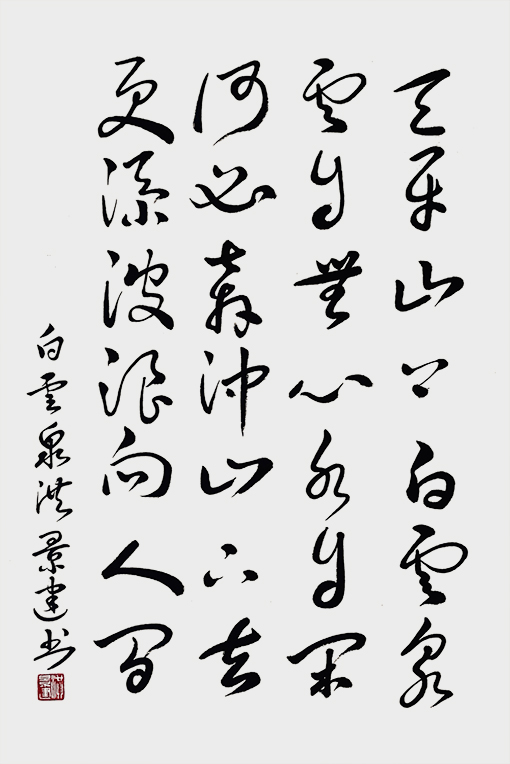 天平山上白雲泉
雲自無心水自閑
何必奔沖山下去
更添波浪向人間
白雲泉洪景建书